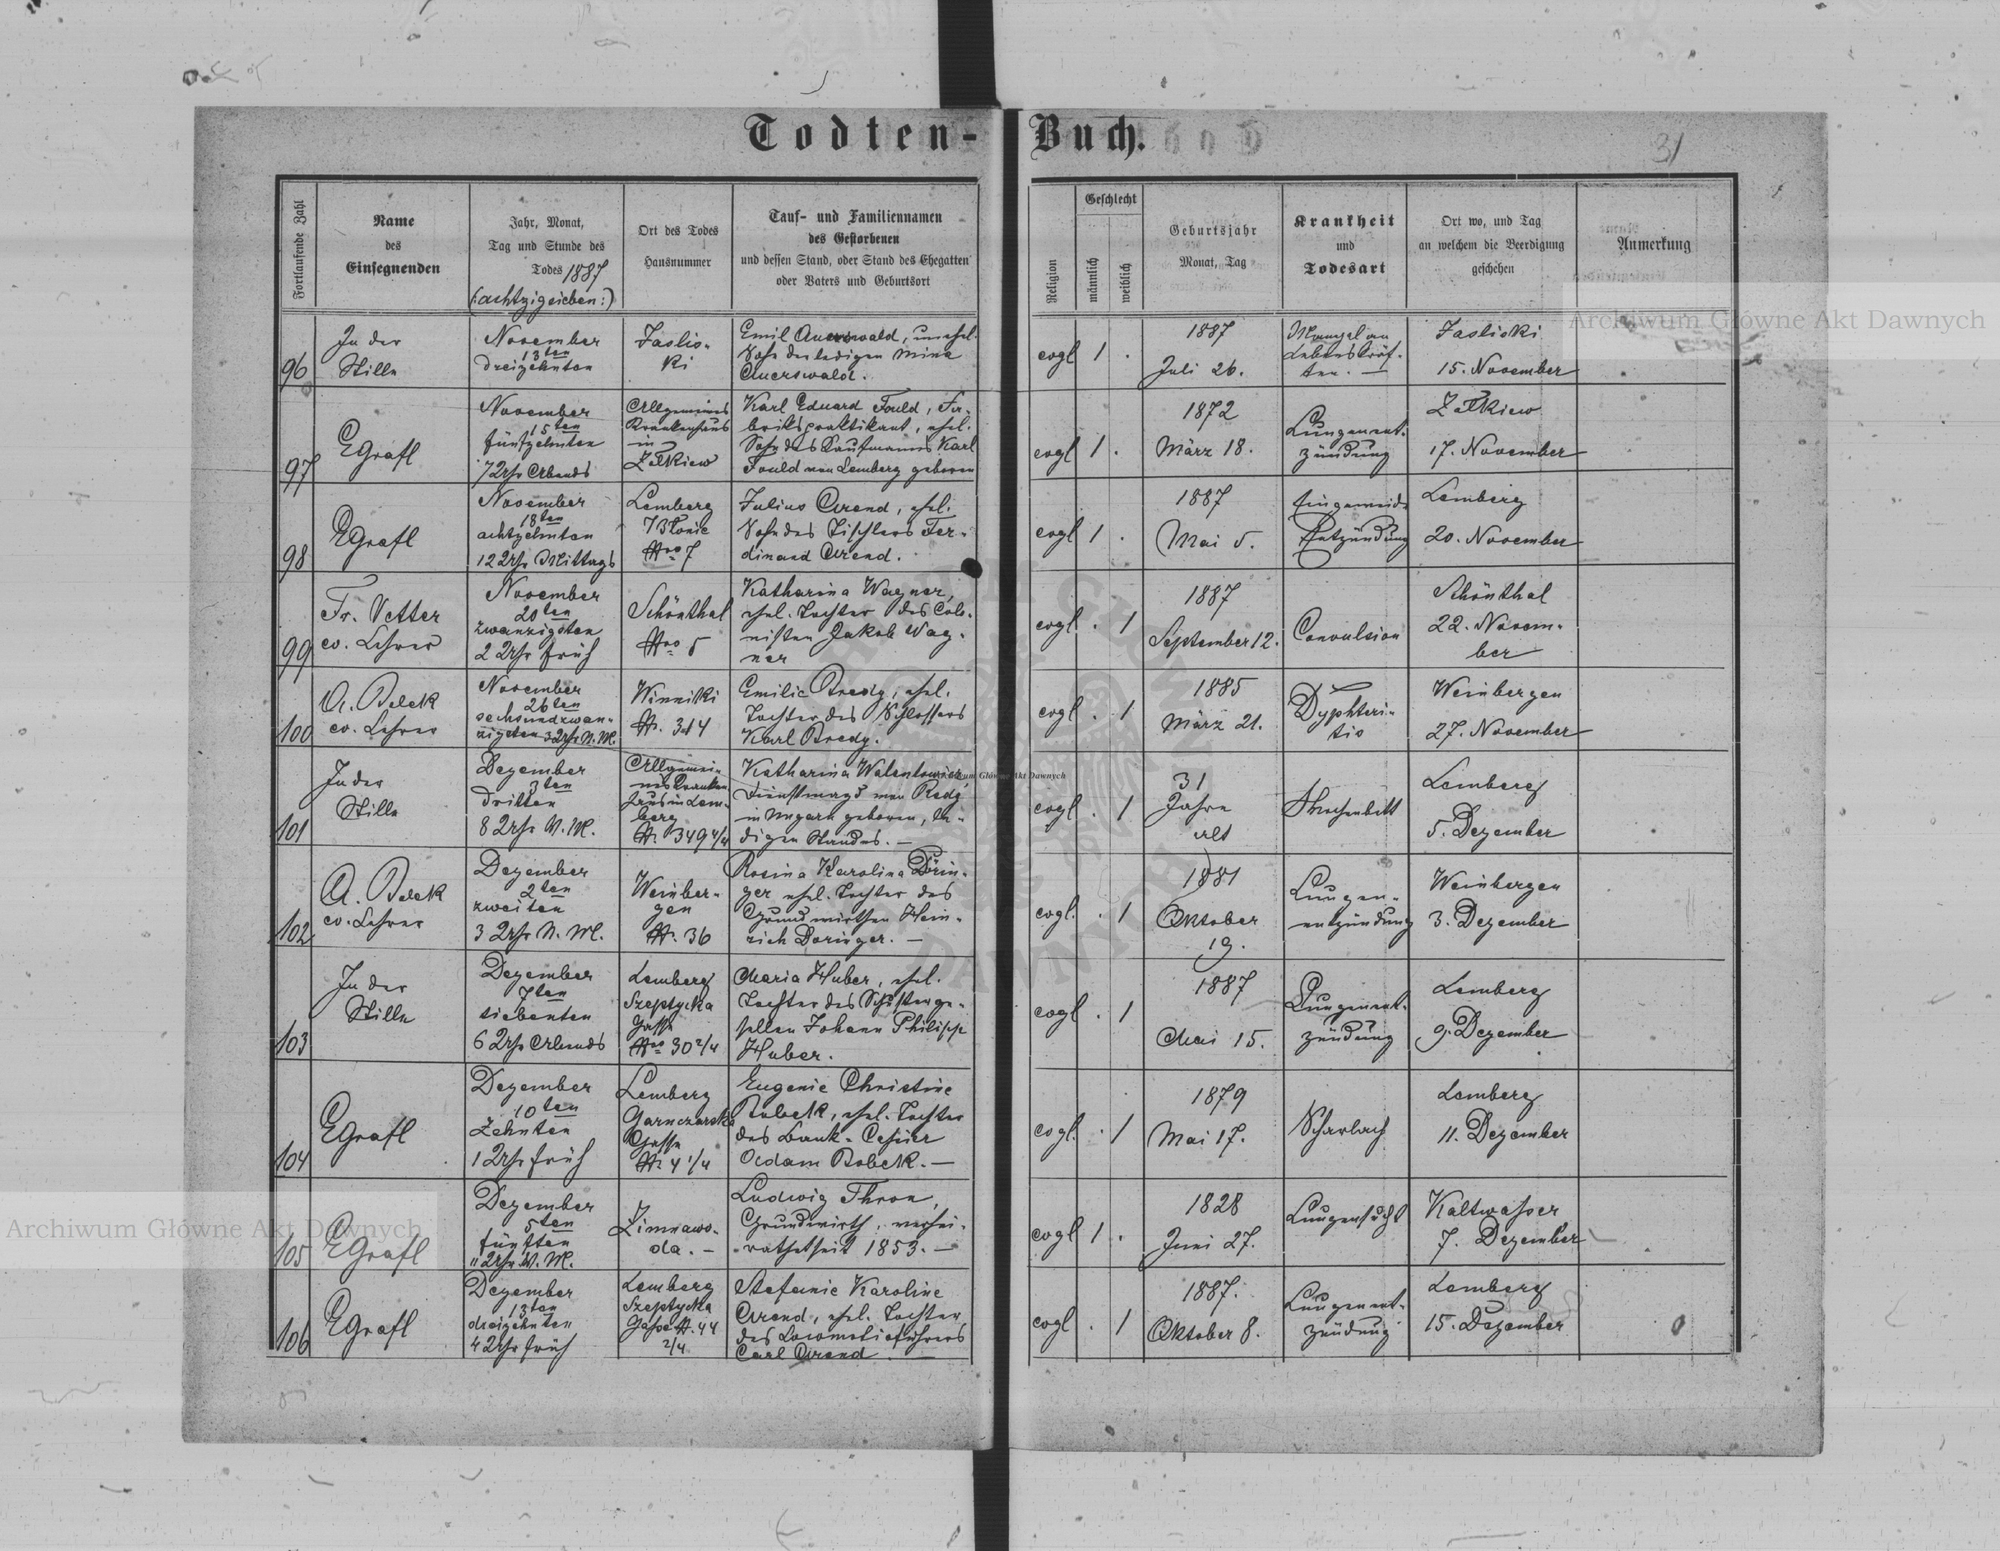 Todten-Buch.
31
Fortlaufende Zahl
Name
des
Einsegnenden
Jahr, Monat,
Tag und Stunde des
Todes 1887
(:achtzigsieben:)
Ort des Todes
Hausnummer
Tauf- und Familiennamen
des Gestorbenen
und dessen Stand, oder Stand des Ehegatten
oder Vaters und Geburtsort
Religion
Geschlecht
männlich
weiblich
Geburtsjahr
Monat, Tag
Krankheit
und
Todesart
Ort wo, und Tag
an welchem die Beerdigung
geschehen
Anmerkung
96
In der
Stille
November
13ten
dreizehnten
Jaslis-
ki
Emil Auerswald, unehel.
Sohn der ledigen Mina
Auerswald.
evgl
1 .
1887
Juli 26.
Mangel an
Lebenskräf-
ten. —
Jasliski
15. November
97
EGrafl
November
15ten
fünfzehnten
7 Uhr Abends
Allgemeines
Krankenhaus
in
Zółkiew
Karl Eduard Fould, Fa-
brikspraktikant, ehel.
Sohn des Kaufmannes Karl
Fould von Lemberg geboren
evgl
1 .
1872
März 18.
Lungenent-
zündung
Zółkiew
17. November
98
EGrafl
November
18ten
achtzehnten
12 Uhr Mittags
Lemberg
Błonie
Nro 7
Julius Arend, ehel.
Sohn des Tischlers Fer-
dinand Arend.
evgl
1 .
1887
Mai 5.
Eingeweide
Entzündung
Lemberg
20. November
99
Fr. Vetter
ev. Lehrer
November
20ten
zwanzigsten
2 Uhr früh
Schönthal
Nro 5
Katharina Wagner,
ehel. Tochter des Colo-
nisten Jakob Wag-
ner
evgl.
. 1
1887
September 12.
Convulsion
Schönthal
22. Novem-
ber
100
A. Belek
ev. Lehrer
November
26ten
sechsundzwan-
zigsten 3 Uhr N. M.
Winniki
N. 314
Emilie Bredy, ehel.
Tochter des Schlossers
Karl Bredy.
evgl
. 1
1885
März 21.
Dyphteri-
tis
Weinbergen
27. November
101
In der
Stille
Dezember
3ten
dritten
8 Uhr V. M.
Allgemei-
nes Kranken
haus in Lem-
berg
N. 349 4/4
Katharina Walentowicz
Dienstmagd von
in Ungarn geboren, le-
digen Standes. —
evgl
. 1
31
Jahre
alt
Lemberg
5. Dezember
102
A. Belek
ev. Lehrer
Dezember
2ten
zweiten
3 Uhr N. M.
Weinber-
gen
N. 36
Rosina Karolina Dörin-
ger ehel. Tochter des
Grundwirthen Hein-
rich Doringer. —
evgl.
. 1
1881
Oktober
19.
Lungen-
entzündung
Weinbergen
3. Dezember
103
In der
Stille
Dezember
7ten
siebenten
6 Uhr Abends
Lemberg
Szeptycka
Gasse
Nro 30 2/4
Maria Huber, ehel.
Tochter des Schusterge-
sellen Johann Philipp
Huber.
evgl
. 1
1887
Mai 15.
Lungenent-
zündung
Lemberg
9. Dezember
104
EGrafl
Dezember
10ten
Zehnten
1 Uhr früh
Lemberg
Garnczarska
Gasse
N. 4 1/4
Eugenie Christine
Bobek, ehel. Tochter
des Bank-Cassier
Adam Bobek. —
evgl.
. 1
1879
Mai 17.
Scharlach
Lemberg
11. Dezember
105
EGrafl
Dezember
5ten
fünften
11 Uhr V. M.
Zimnawo-
da. —
Ludwig Thron,
Grundwirth, verhei-
rathet seit 1853. —
evgl
1 .
1828
Juni 27.
Lungensucht
Kaltwasser
7. Dezember
106
EGrafl
Dezember
13ten
dreizehnten
4 Uhr früh
Lemberg
Szeptycka
Gasse N. 44
2/4
Stefanie Karoline
Arend, ehel. Tochter
des Locomotivführers
Carl Arend. —
evgl
. 1
1887.
Oktober 8.
Lungenent-
zündung
Lemberg
15. Dezember
Archiwum Główne Akt Dawnych
Archiwum Główne Akt Dawnych